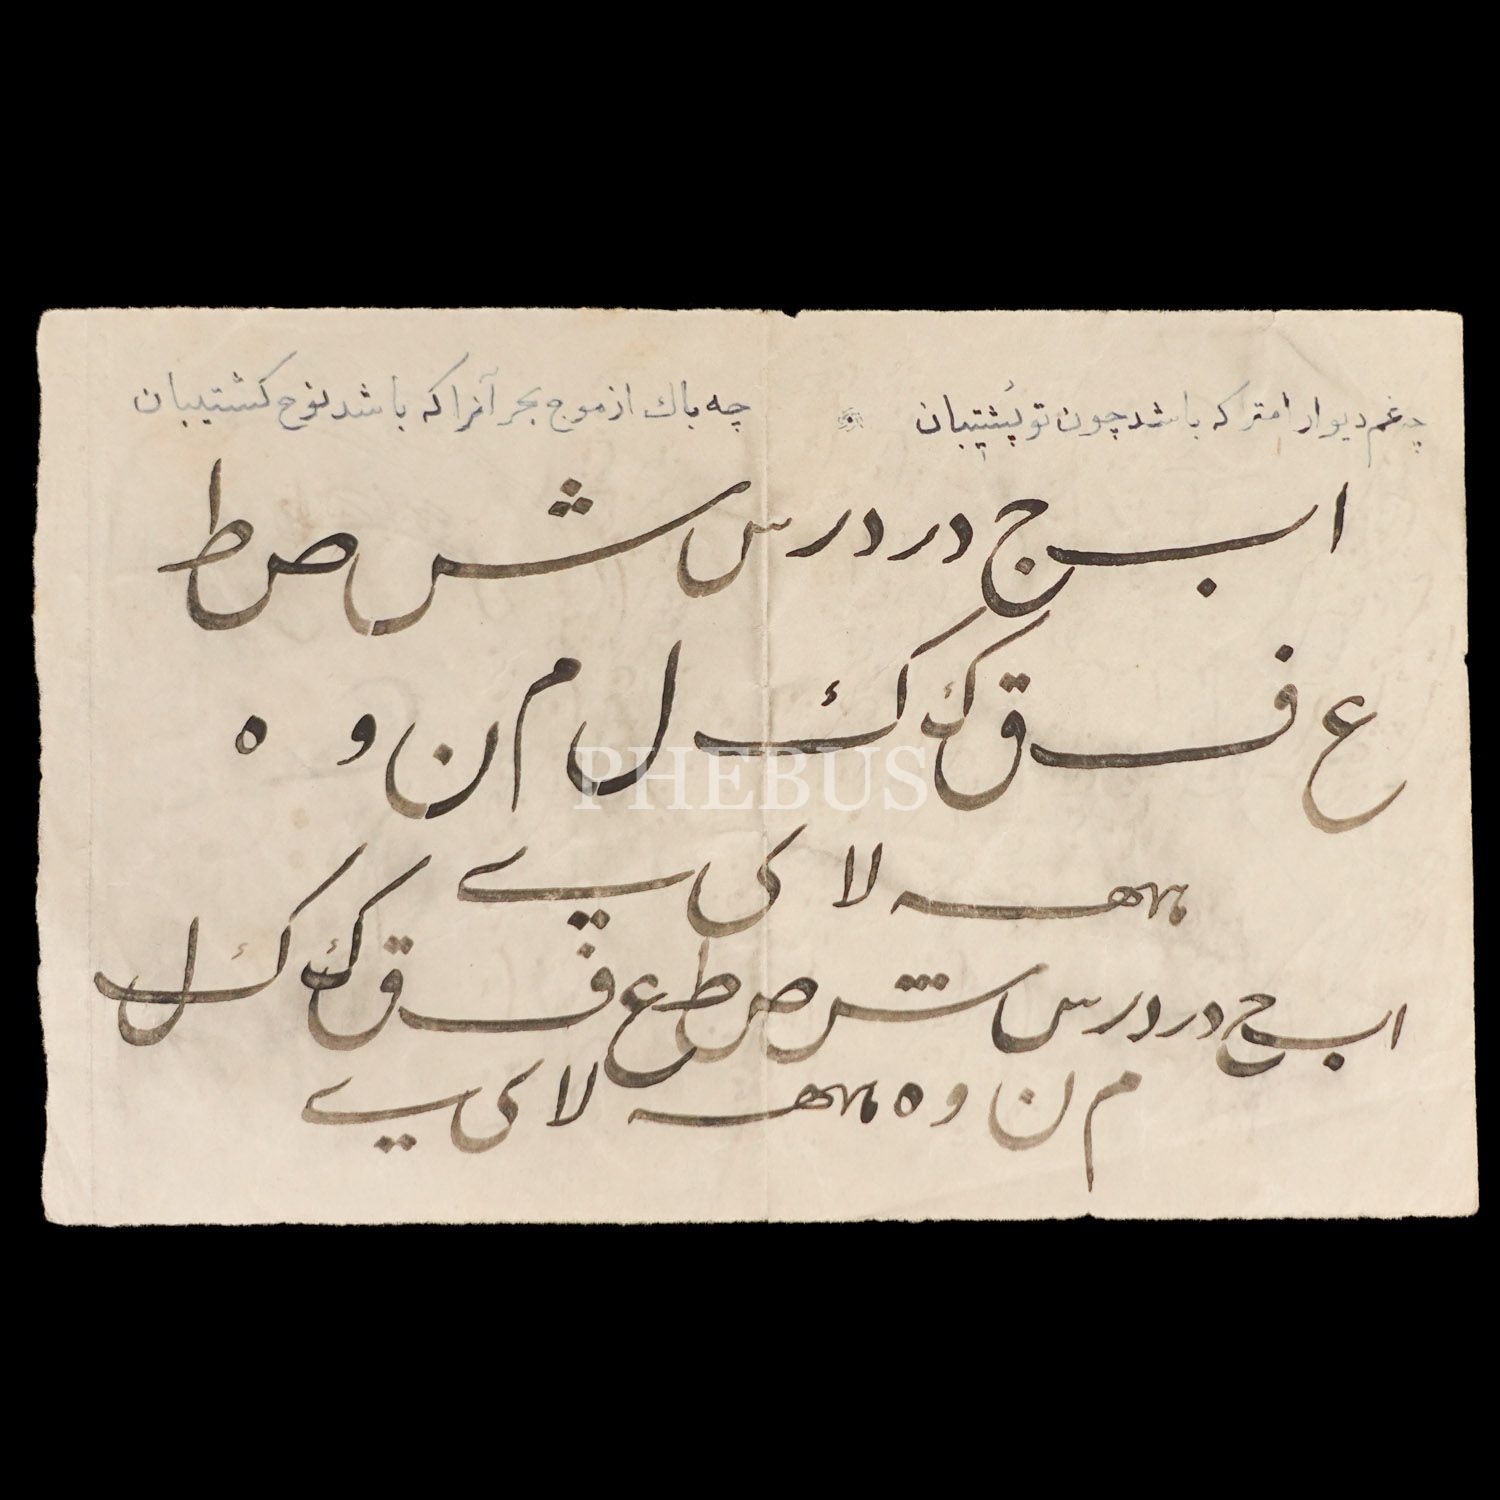 چه غم دیوار امترا که باشد چون تو پُشتیبان ۞ چه باك از موج بحر آنرا که باشد نوح کشتیبان
ا ب ج د ر د ر س ش س ص ط
ع ف ق ك ك ل م ن و ه
ههه لا ى ے
ا ب ج د ر د ر س ش ص ط ع ف ق ك ك ل
م ن و ه ههه لا ى ے
PHEBUS